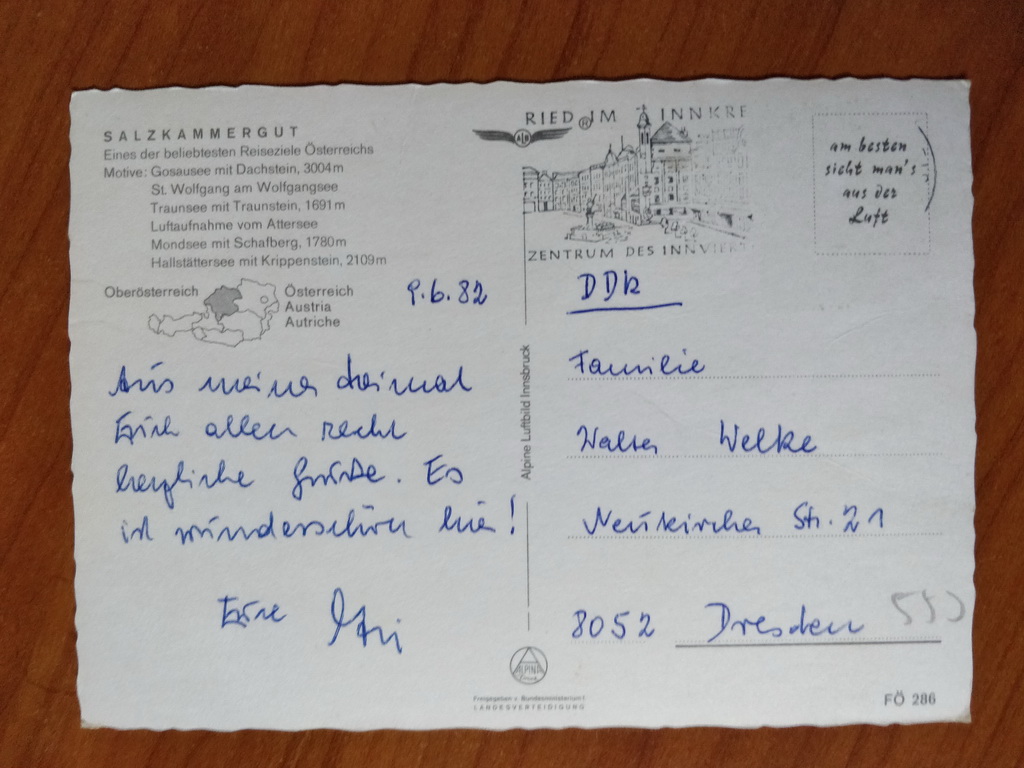 SALZKAMMERGUT
Eines der beliebtesten Reiseziele Österreichs
Motive: Gosausee mit Dachstein, 3004 m
St. Wolfgang am Wolfgangsee
Traunsee mit Traunstein, 1691 m
Luftaufnahme vom Attersee
Mondsee mit Schafberg, 1780 m
Hallstättersee mit Krippenstein, 2109 m
Oberösterreich
Österreich
Austria
Autriche
9.6.82
Aus meiner Heimat
Euch allen recht
herzliche Grüße. Es
ist wunderschön hier!
Eure
Alpine Luftbild Innsbruck
ALPINA
Freigegeben v. Bundesministerium f.
LANDESVERTEIDIGUNG
RIED IM INNKRE
ZENTRUM DES INNVIER
am besten
sieht man's
aus der
Luft
DDR
Familie
Walter Welke
Neukircher Str. 21
8052 Dresden
FÖ 286